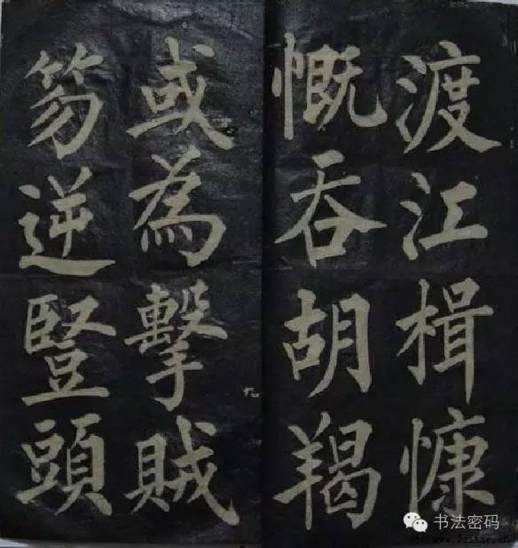 渡江楫慷
慨吞胡羯
或為擊賊
笏逆豎頭
书法密码